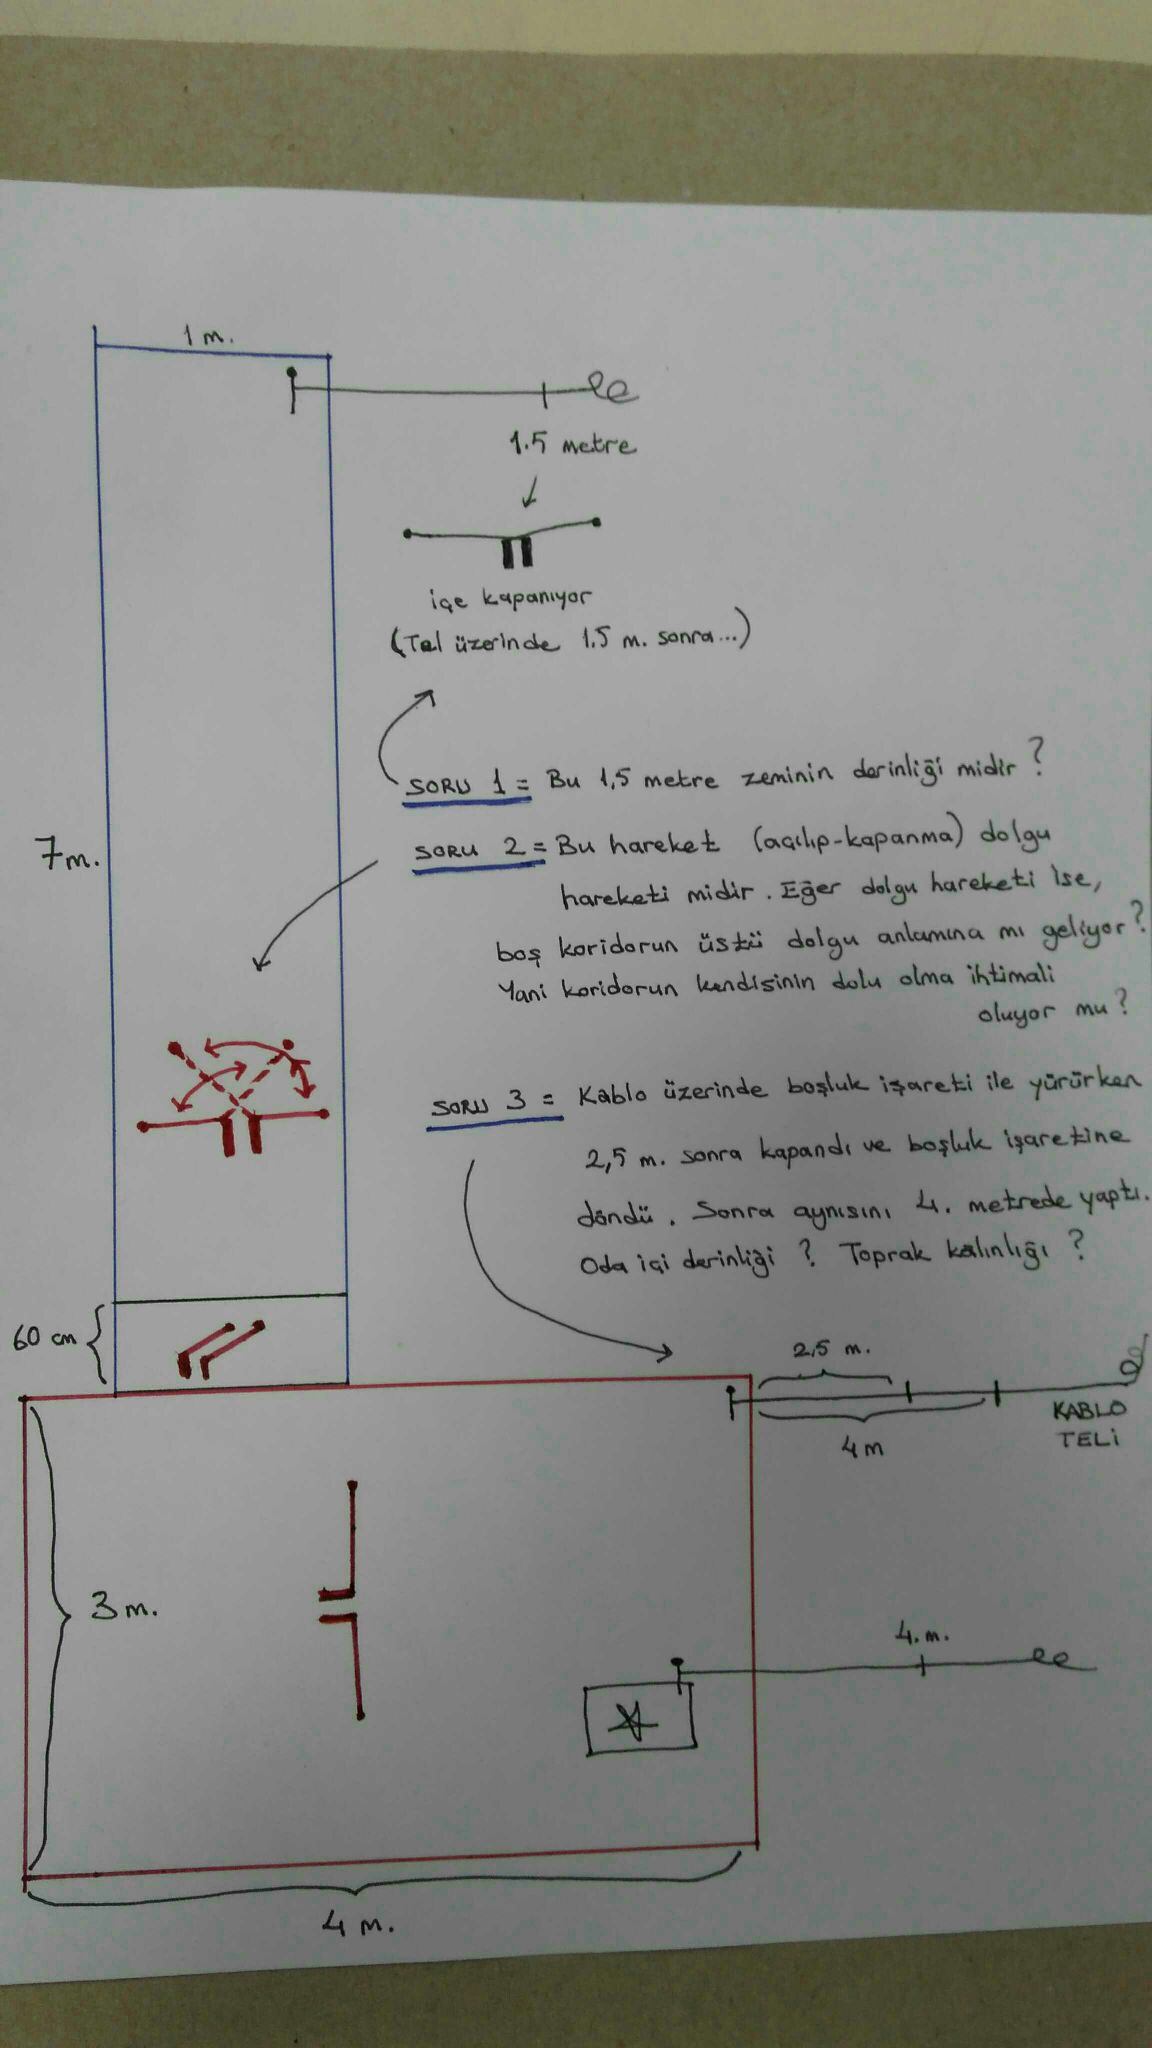 1 m.
1.5 metre
içe kapanıyor
(Tel üzerinde 1.5 m. sonra...)
SORU 1 = Bu 1,5 metre zeminin derinliği midir?
7 m.
SORU 2 = Bu hareket (açılıp-kapanma) dolgu
hareketi midir. Eğer dolgu hareketi ise,
boş koridorun üstü dolgu anlamına mı geliyor?
Yani koridorun kendisinin dolu olma ihtimali
oluyor mu?
SORU 3 = Kablo üzerinde boşluk işareti ile yürürken
2,5 m. sonra kapandı ve boşluk işaretine
döndü. Sonra aynısını 4. metrede yaptı.
Oda içi derinliği? Toprak kalınlığı?
60 cm
2,5 m.
KABLO
TELİ
4 m
3 m.
4. m.
4 m.